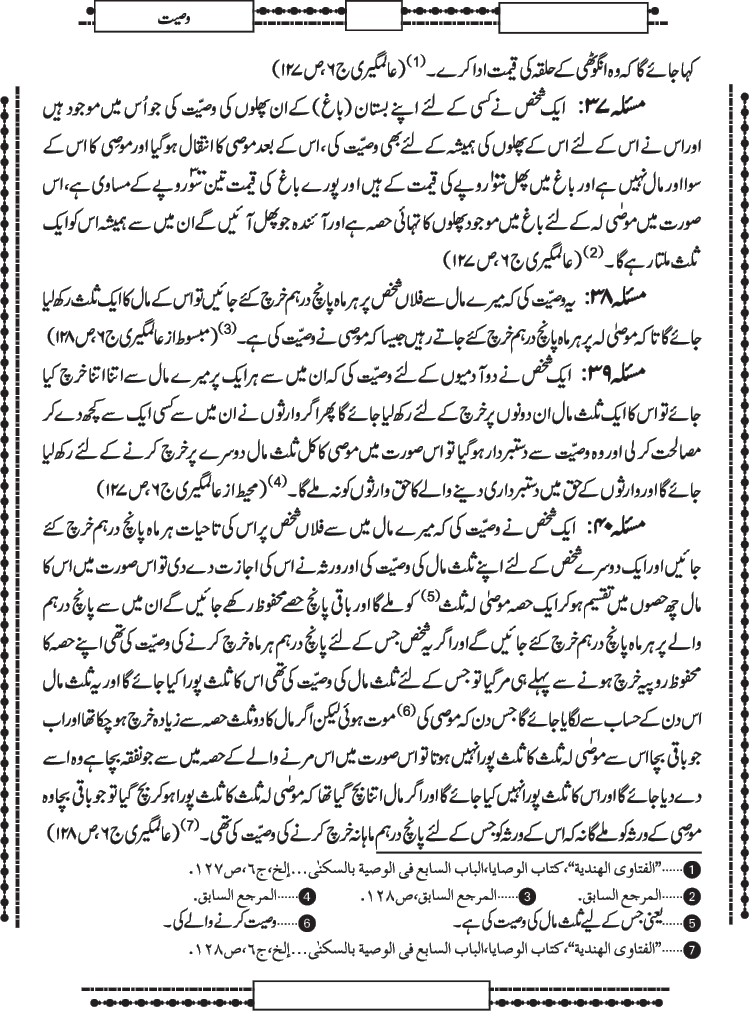 وصیت
کہا جائے گا کہ وہ انگوٹھی کے حلقہ کی قیمت ادا کرے۔ (1) (عالمگیری ج۶،ص ۱۲۷)
مسئلہ ۳۷: ایک شخص نے کسی کے لئے اپنے بستان (باغ) کے ان پھلوں کی وصیّت کی جو اُس میں موجود ہیں
اور اس نے اس کے لئے اس کے پھلوں کی ہمیشہ کے لئے بھی وصیّت کی، اس کے بعد موصی کا انتقال ہوگیا اور موصی کا اس کے
سوا اور مال نہیں ہے اور باغ میں پھل سو۱۰۰ روپے کی قیمت کے ہیں اور پورے باغ کی قیمت تین سو۳۰۰ روپے کے مساوی ہے، اس
صورت میں موصٰی لہ کے لئے باغ میں موجود پھلوں کا تہائی حصہ ہے اور آئندہ جو پھل آئیں گے ان میں سے ہمیشہ اس کو ایک
ثلث ملتا رہے گا۔ (2) (عالمگیری ج۶،ص ۱۲۷)
مسئلہ ۳۸: یہ وصیّت کی کہ میرے مال سے فلاں شخص پر ہر ماہ پانچ درہم خرچ کئے جائیں تو اس کے مال کا ایک ثلث رکھ لیا
جائے گا تا کہ موصٰی لہ پر ہر ماہ پانچ درہم خرچ کئے جاتے رہیں جیسا کہ موصی نے وصیّت کی ہے۔ (3) (مبسوط از عالمگیری ج۶،ص ۱۲۸)
مسئلہ ۳۹: ایک شخص نے دو آدمیوں کے لئے وصیّت کی کہ ان میں سے ہر ایک پر میرے مال سے اتنا اتنا خرچ کیا
جائے تو اس کا ایک ثلث مال ان دونوں پر خرچ کے لئے رکھ لیا جائے گا پھر اگر وارثوں نے ان میں سے کسی ایک سے کچھ دے کر
مصالحت کر لی اور وہ وصیّت سے دستبردار ہوگیا تو اس صورت میں موصی کا کل ثلث مال دوسرے پر خرچ کرنے کے لئے رکھ لیا
جائے گا اور وارثوں کے حق میں دستبرداری دینے والے کا حق وارثوں کو نہ ملے گا۔ (4) (محیط از عالمگیری ج۶،ص ۱۲۷)
مسئلہ ۴۰: ایک شخص نے وصیّت کی کہ میرے مال میں سے فلاں شخص پر اس کی تا حیات ہر ماہ پانچ درہم خرچ کئے
جائیں اور ایک دوسرے شخص کے لئے اپنے ثلث مال کی وصیّت کی اور ورثہ نے اس کی اجازت دے دی تو اس صورت میں اس کا
مال چھ حصوں میں تقسیم ہو کر ایک حصہ موصٰی لہ ثلث (5) کو ملے گا اور باقی پانچ حصے محفوظ رکھے جائیں گے ان میں سے پانچ درہم
والے پر ہر ماہ پانچ درہم خرچ کئے جائیں گے اور اگر یہ شخص جس کے لئے پانچ درہم ہر ماہ خرچ کرنے کی وصیّت کی تھی اپنے حصہ کا
محفوظ روپیہ خرچ ہونے سے پہلے ہی مر گیا تو جس کے لئے ثلث مال کی وصیّت کی تھی اس کا ثلث پورا کیا جائے گا اور یہ ثلث مال
اس دن کے حساب سے لگایا جائے گا جس دن کہ موصی کی (6) موت ہوئی لیکن اگر مال کا دو ثلث حصہ سے زیادہ خرچ ہو چکا تھا اور اب
جو باقی بچا اس سے موصٰی لہ ثلث کا ثلث پورا نہیں ہوتا تو اس صورت میں اس مرنے والے کے حصہ میں سے جو نفقہ بچا ہے وہ اسے
دے دیا جائے گا اور اس کا ثلث پورا نہیں کیا جائے گا اور اگر مال اتنا بچ گیا تھا کہ موصٰی لہ ثلث کا ثلث پورا ہو کر بچ گیا تو جو باقی بچا وہ
موصی کے ورثہ کو ملے گا نہ کہ اس کے ورثہ کو جس کے لئے پانچ درہم ماہانہ خرچ کرنے کی وصیّت کی تھی۔ (7) (عالمگیری ج۶،ص ۱۲۸)
1......"الفتاوی الھندیة"،کتاب الوصایا،الباب السابع فی الوصیة بالسکنٰی...إلخ،ج۶،ص۱۲۷.
2......المرجع السابق. 3......المرجع السابق،ص۱۲۸. 4......المرجع السابق.
5......یعنی جس کے لیے ثلث مال کی وصیت کی ہے۔ 6......وصیت کرنے والے کی۔
7......"الفتاوی الھندیة"،کتاب الوصایا،الباب السابع فی الوصیة بالسکنٰی...إلخ،ج۶،ص۱۲۸.